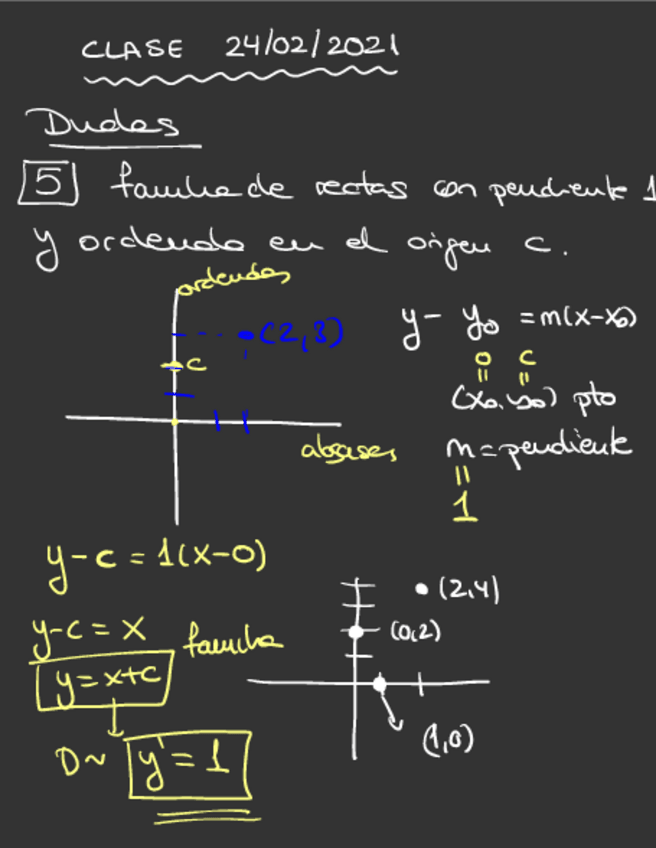 CLASE 24/02/2021
Dudas
5 familia de rectas con pendiente 1
y ordenada en el origen c.
ordenadas
(2,3)
c
abscisas
y - y₀ = m(x-x₀)
0 c
" "
(x₀, y₀) pto
m = pendiente
"
1
y-c = 1(x-0)
y-c = x
familia
y = x+c
D~ y' = 1
(2,4)
(0,2)
(1,0)